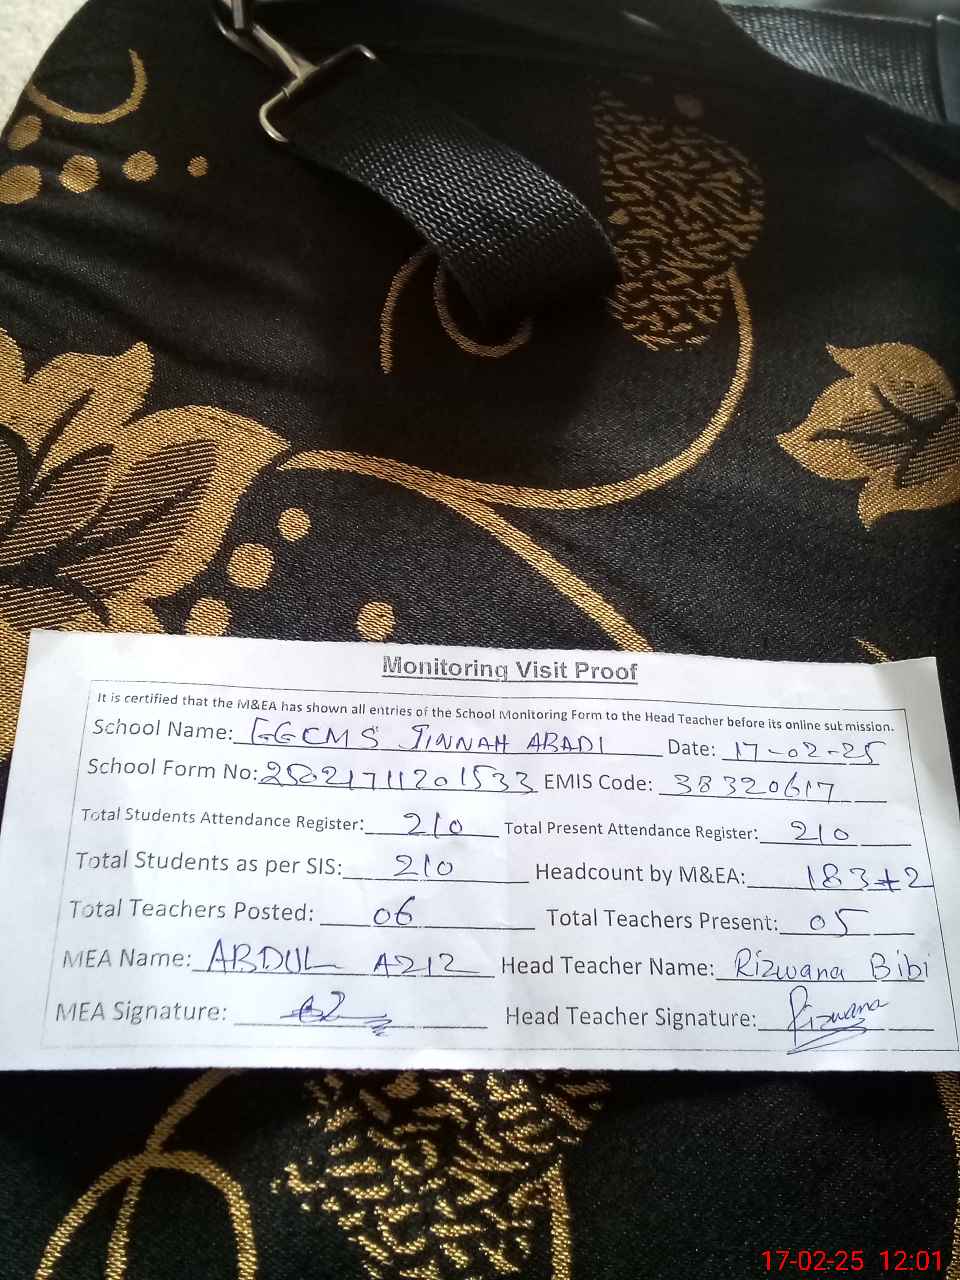 Monitoring Visit Proof
It is certified that the M&EA has shown all entries of the School Monitoring Form to the Head Teacher before its online submission.
School Name: GGCMS JINNAH ABADI Date: 17-02-25
School Form No: EMIS Code: 38320617
Total Students Attendance Register: 210 Total Present Attendance Register: 210
Total Students as per SIS: 210 Headcount by M&EA: 183+2
Total Teachers Posted: 06 Total Teachers Present: 05
MEA Name: ABDUL AZIZ Head Teacher Name: Rizwana Bibi
MEA Signature: Head Teacher Signature: Rizwana
17-02-25 12:01